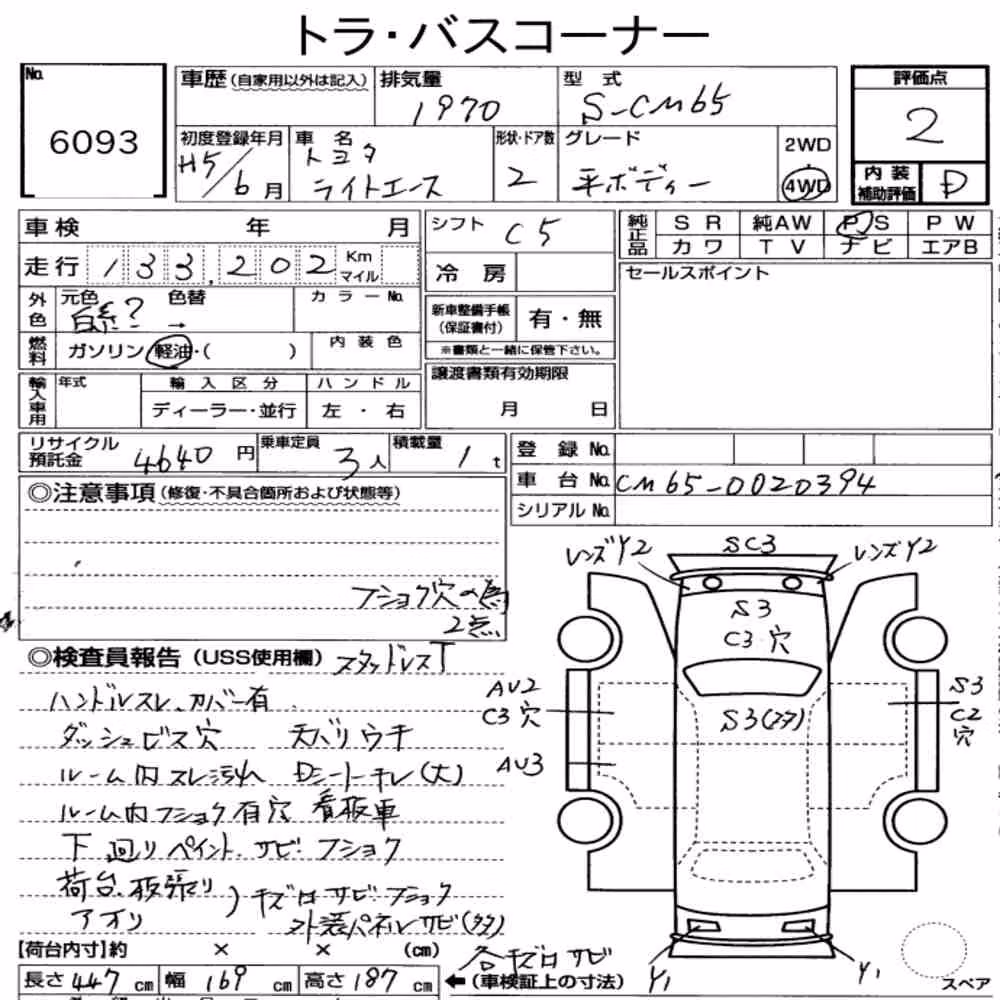 トラ・バスコーナー
No.
6093
車歴(自家用以外は記入)
排気量
1970
型式
S-CM65
評価点
2
初度登録年月
H5/6月
車名
トヨタ
ライトエース
形状・ドア数
2
グレード
平ボディー
2WD
4WD
内装補助評価
D
車検 年 月
走行 133,202 Km マイル
外色
元色 色替
白系? →
カラーNo.
燃料
ガソリン 軽油・( )
内装色
輸入車用
年式
輸入区分
ディーラー・並行
ハンドル
左・右
シフト
C5
冷房
新車整備手帳
(保証書付)
有・無
※書類と一緒に保管下さい。
譲渡書類有効期限
月 日
純正品
SR 純AW PS PW
カワ TV ナビ エアB
セールスポイント
リサイクル預託金
4640円
乗車定員
3人
積載量
1t
登録No.
車台No.
CM65-0020394
シリアルNo.
◎注意事項(修復・不具合箇所および状態等)
フショク穴の為
2点
◎検査員報告(USS使用欄) スタッドレスT
ハンドルスレ、カバー有
ダッシュビス穴 天バリウキ
ルーム内スレ汚れ Dシートキレ(大)
ルーム内フショク有穴 看板車
下廻りペイント、サビ、フショク
荷台、板張り
アオリ
)キズロサビフショク
外装パネルサビ(タタ)
レンズY2
SC3
レンズY2
S3
C3穴
AU2
C3穴
S3(タタ)
S3
C2
穴
AU3
Y1
Y1
スペア
【荷台内寸】約 × × (cm)
各キズロサビ
長さ447cm 幅169cm 高さ187cm
←(車検証上の寸法)